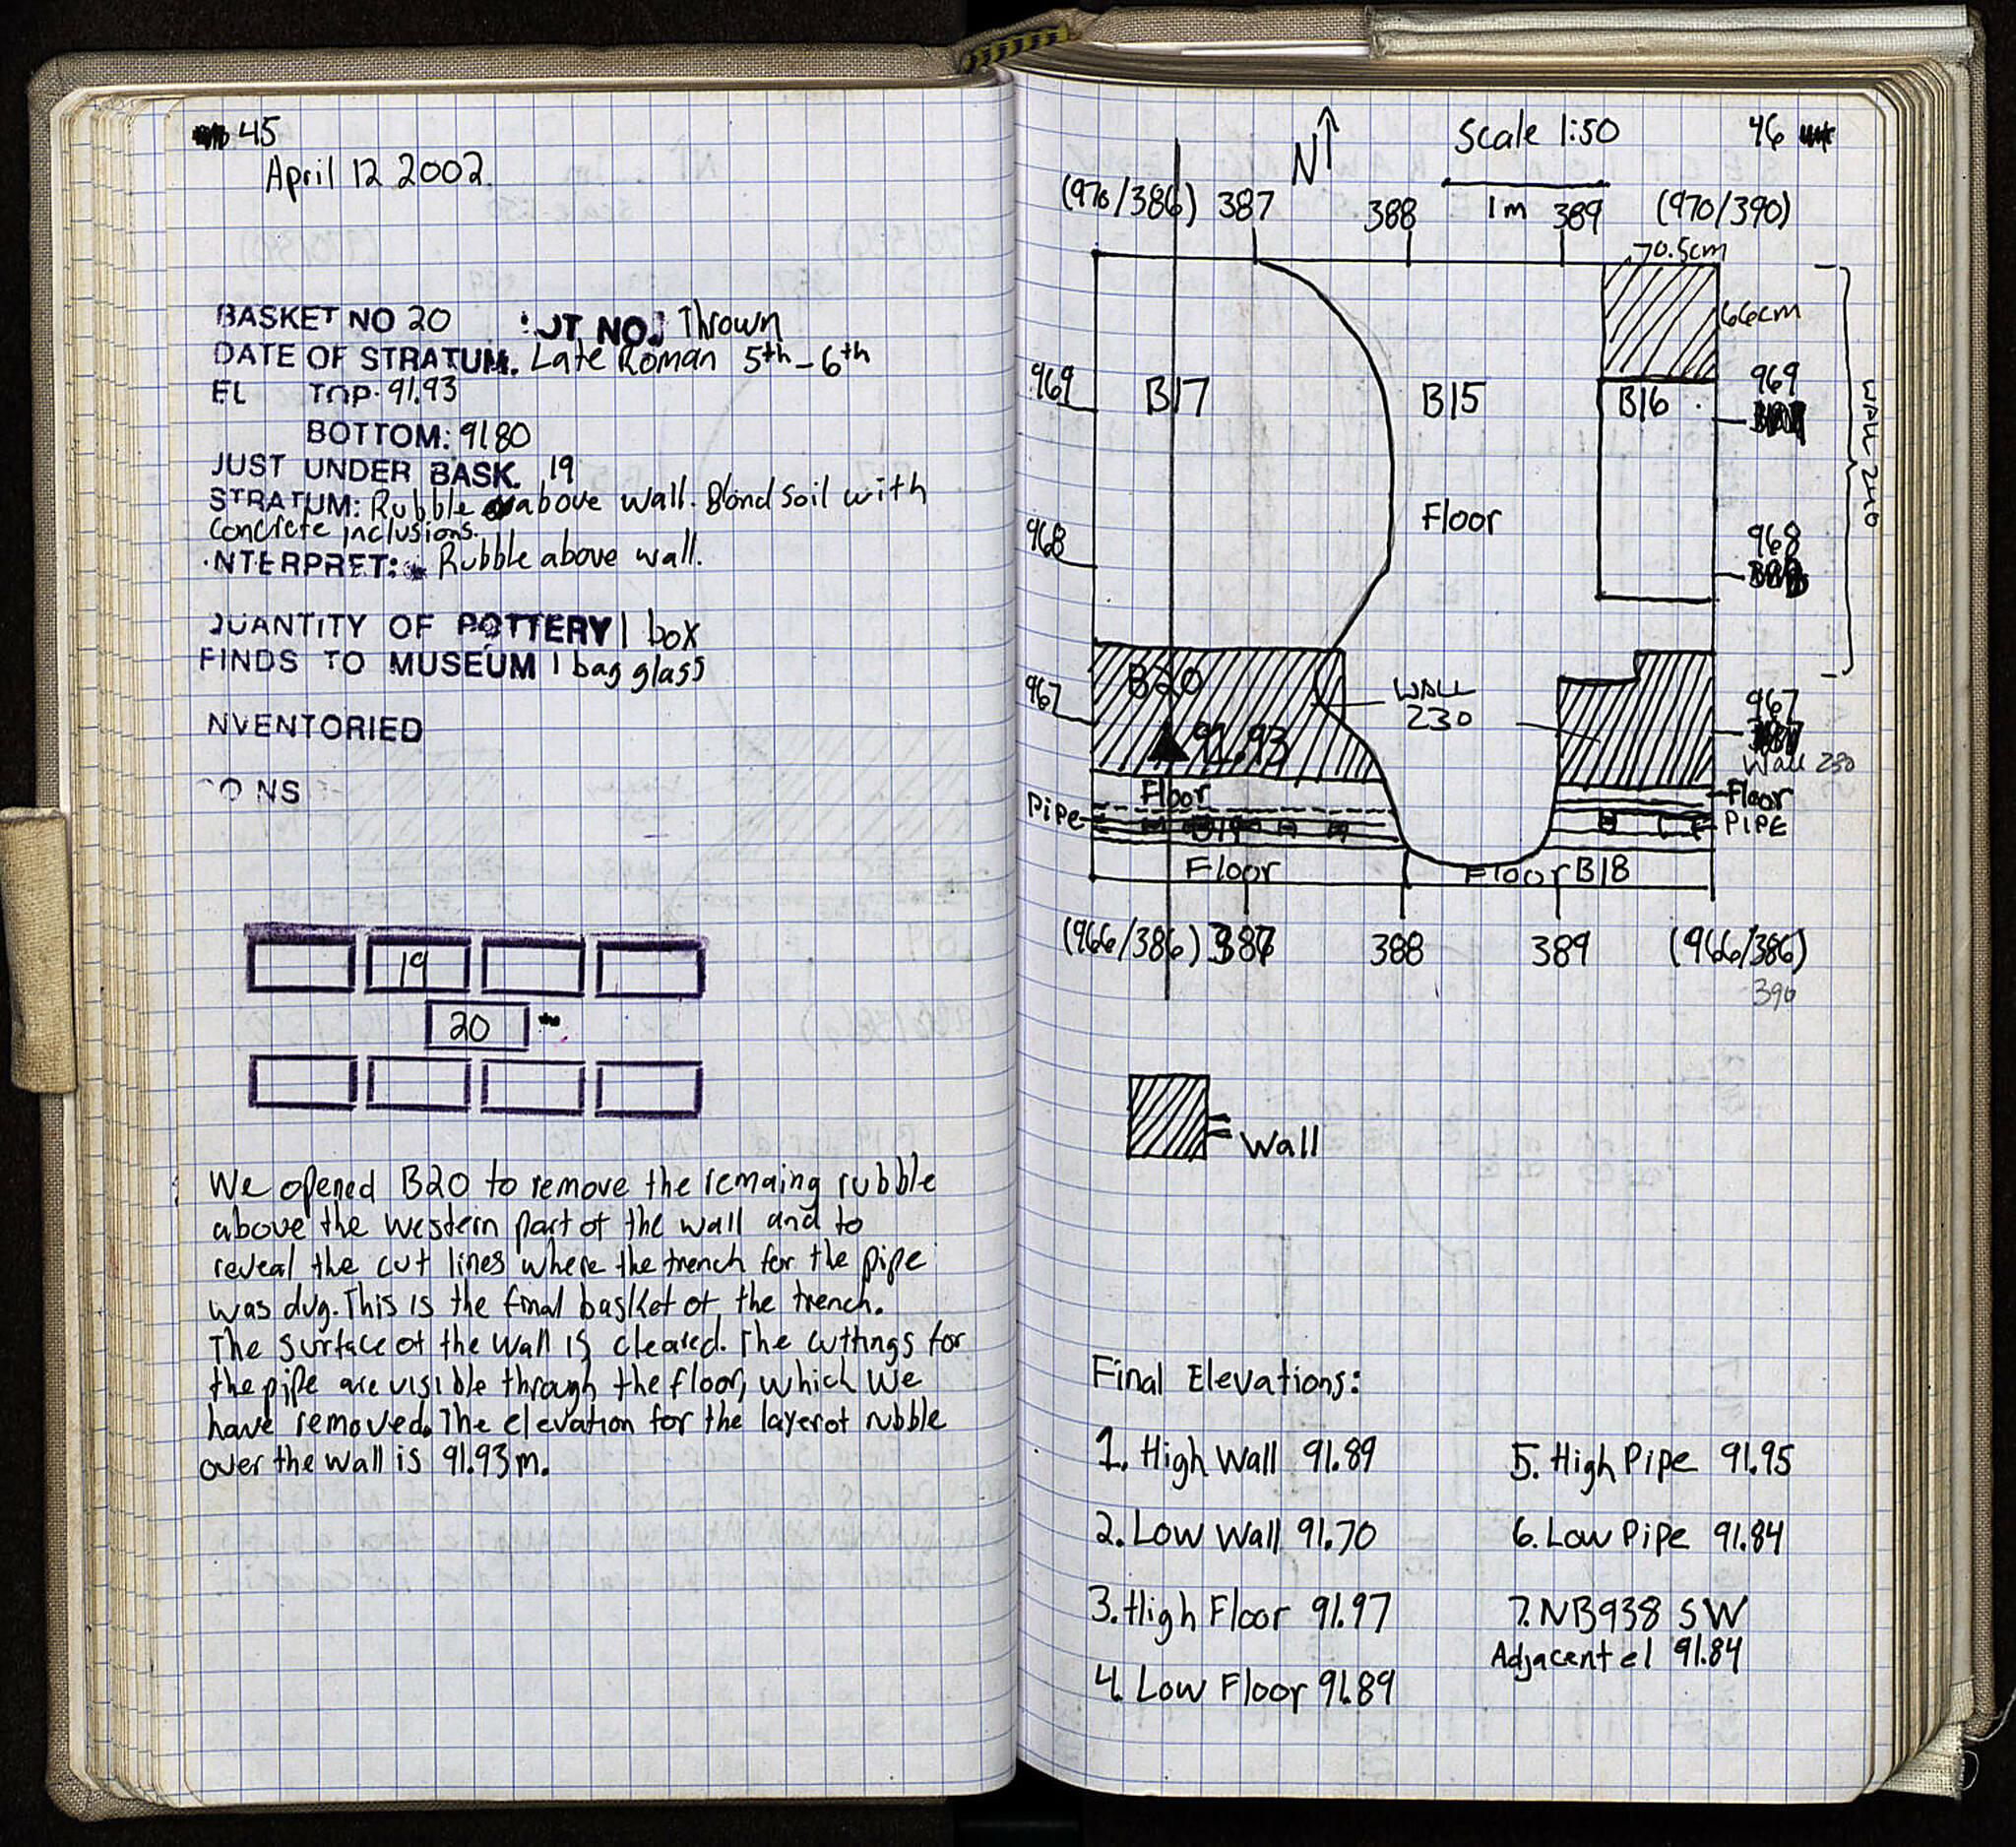 45
April 12 2002.
BASKET NO 20 JT NO. Thrown
DATE OF STRATUM. Late Roman 5th-6th
EL TOP. 91.93
BOTTOM: 91.80
JUST UNDER BASK. 19
STRATUM: Rubble above wall. Blond soil with
concrete inclusions.
NTERPRET: Rubble above wall.
QUANTITY OF POTTERY 1 box
FINDS TO MUSEUM 1 bag glass
NVENTORIED
O NS
19
20
We opened B20 to remove the remaing rubble
above the western part of the wall and to
reveal the cut lines where the trench for the pipe
was dug. This is the final basket of the trench.
The surface of the wall is cleared. The cuttings for
the pipe are visible through the floor, which we
have removed. The elevation for the layer of rubble
over the wall is 91.93m.
N Scale 1:50 46
(970/386) 387 388 1m 389 (970/390)
70.5cm
66cm
969 B17 B15 B16 969
WALL 240
968 Floor 968
B20
967 WALL
230 967
91.93 Wall 230
Floor Floor
Pipe B19 PIPE
Floor Floor B18
(966/386) 387 388 389 (966/386)
390
Wall
Final Elevations:
1. High Wall 91.89 5. High Pipe 91.95
2. Low Wall 91.70 6. Low Pipe 91.84
3. High Floor 91.97 7. NB938 SW
Adjacent el 91.84
4. Low Floor 91.89